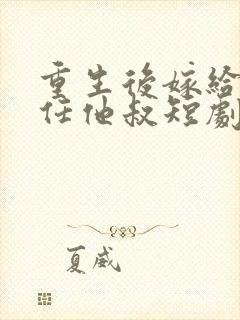 重生後嫁給
任他叔短劇
夏威